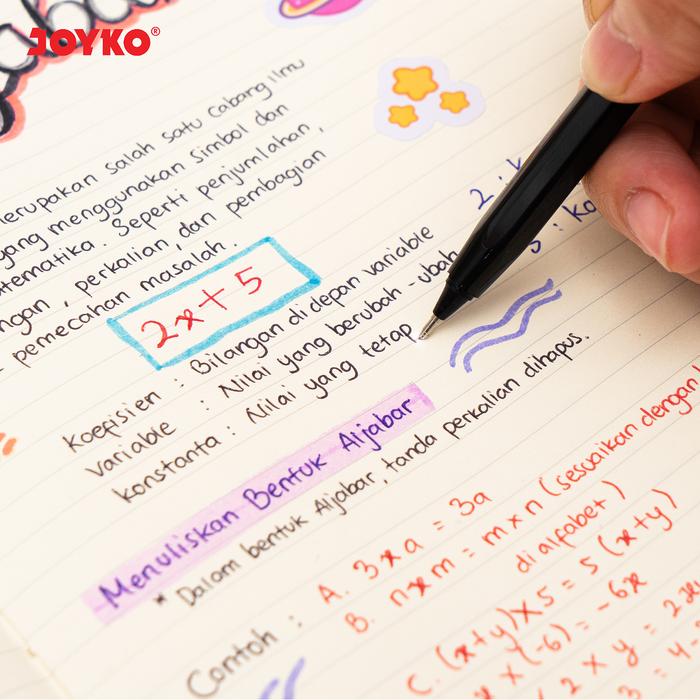 JOYKO®
merupakan salah satu cabang ilmu
yang menggunakan simbol dan
matematika. Seperti penjumlahan,
perkalian, dan pembagian
pemecahan masalah.
2x + 5
Koefisien : Bilangan di depan variable
Variable : Nilai yang berubah - ubah
Konstanta : Nilai yang tetap
2 :
3 : Ko
Menuliskan Bentuk Aljabar
* Dalam bentuk Aljabar, tanda perkalian dihapus.
Contoh : A. 3 x a = 3a
B. n x m = m x n (sesuaikan dengan
di alfabet)
C. (x+y) x 5 = 5 (x+y)
x (-6) = -6x
x 2 x y =